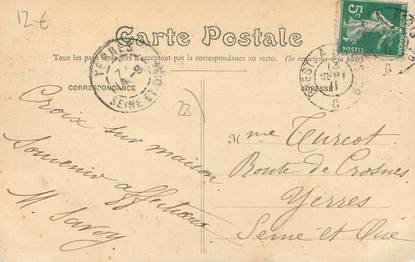 12 €
Carte Postale
Tous les pays étrangers n'acceptent pas la correspondance au recto. (Se renseigner à la poste)
CORRESPONDANCE
ADRESSE
YERRES
SEINE ET OISE
5c
POSTES
22
Croix sur maison
Souvenir affectueux
M. Savoy
Mme Turcot
Route de Crosnes
Yerres
Seine et Oise